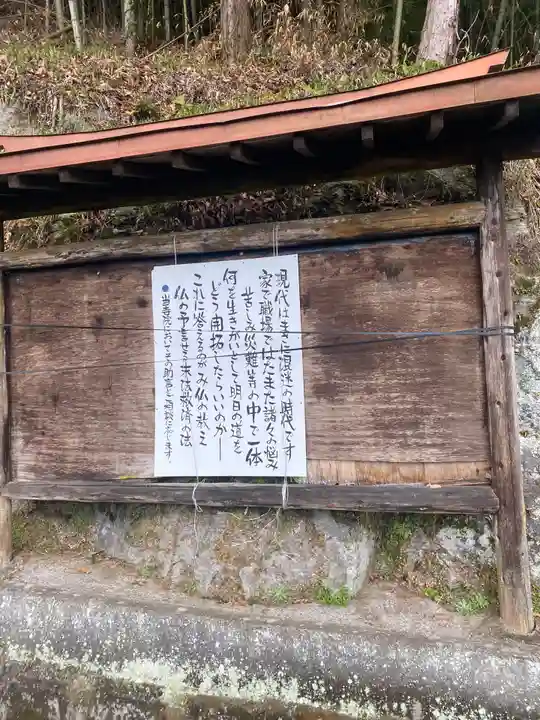 現代はまさに混迷の時代です
家で職場ではたまた諸々の悩み
苦しみ災難等の中で一体
何を生きがいとして明日の道を
どう開拓したらいいのか――
これに答えるのがみ仏の教え
仏の予言せる末法救済の法
●当寺院においてその助言とご相談に応じます。